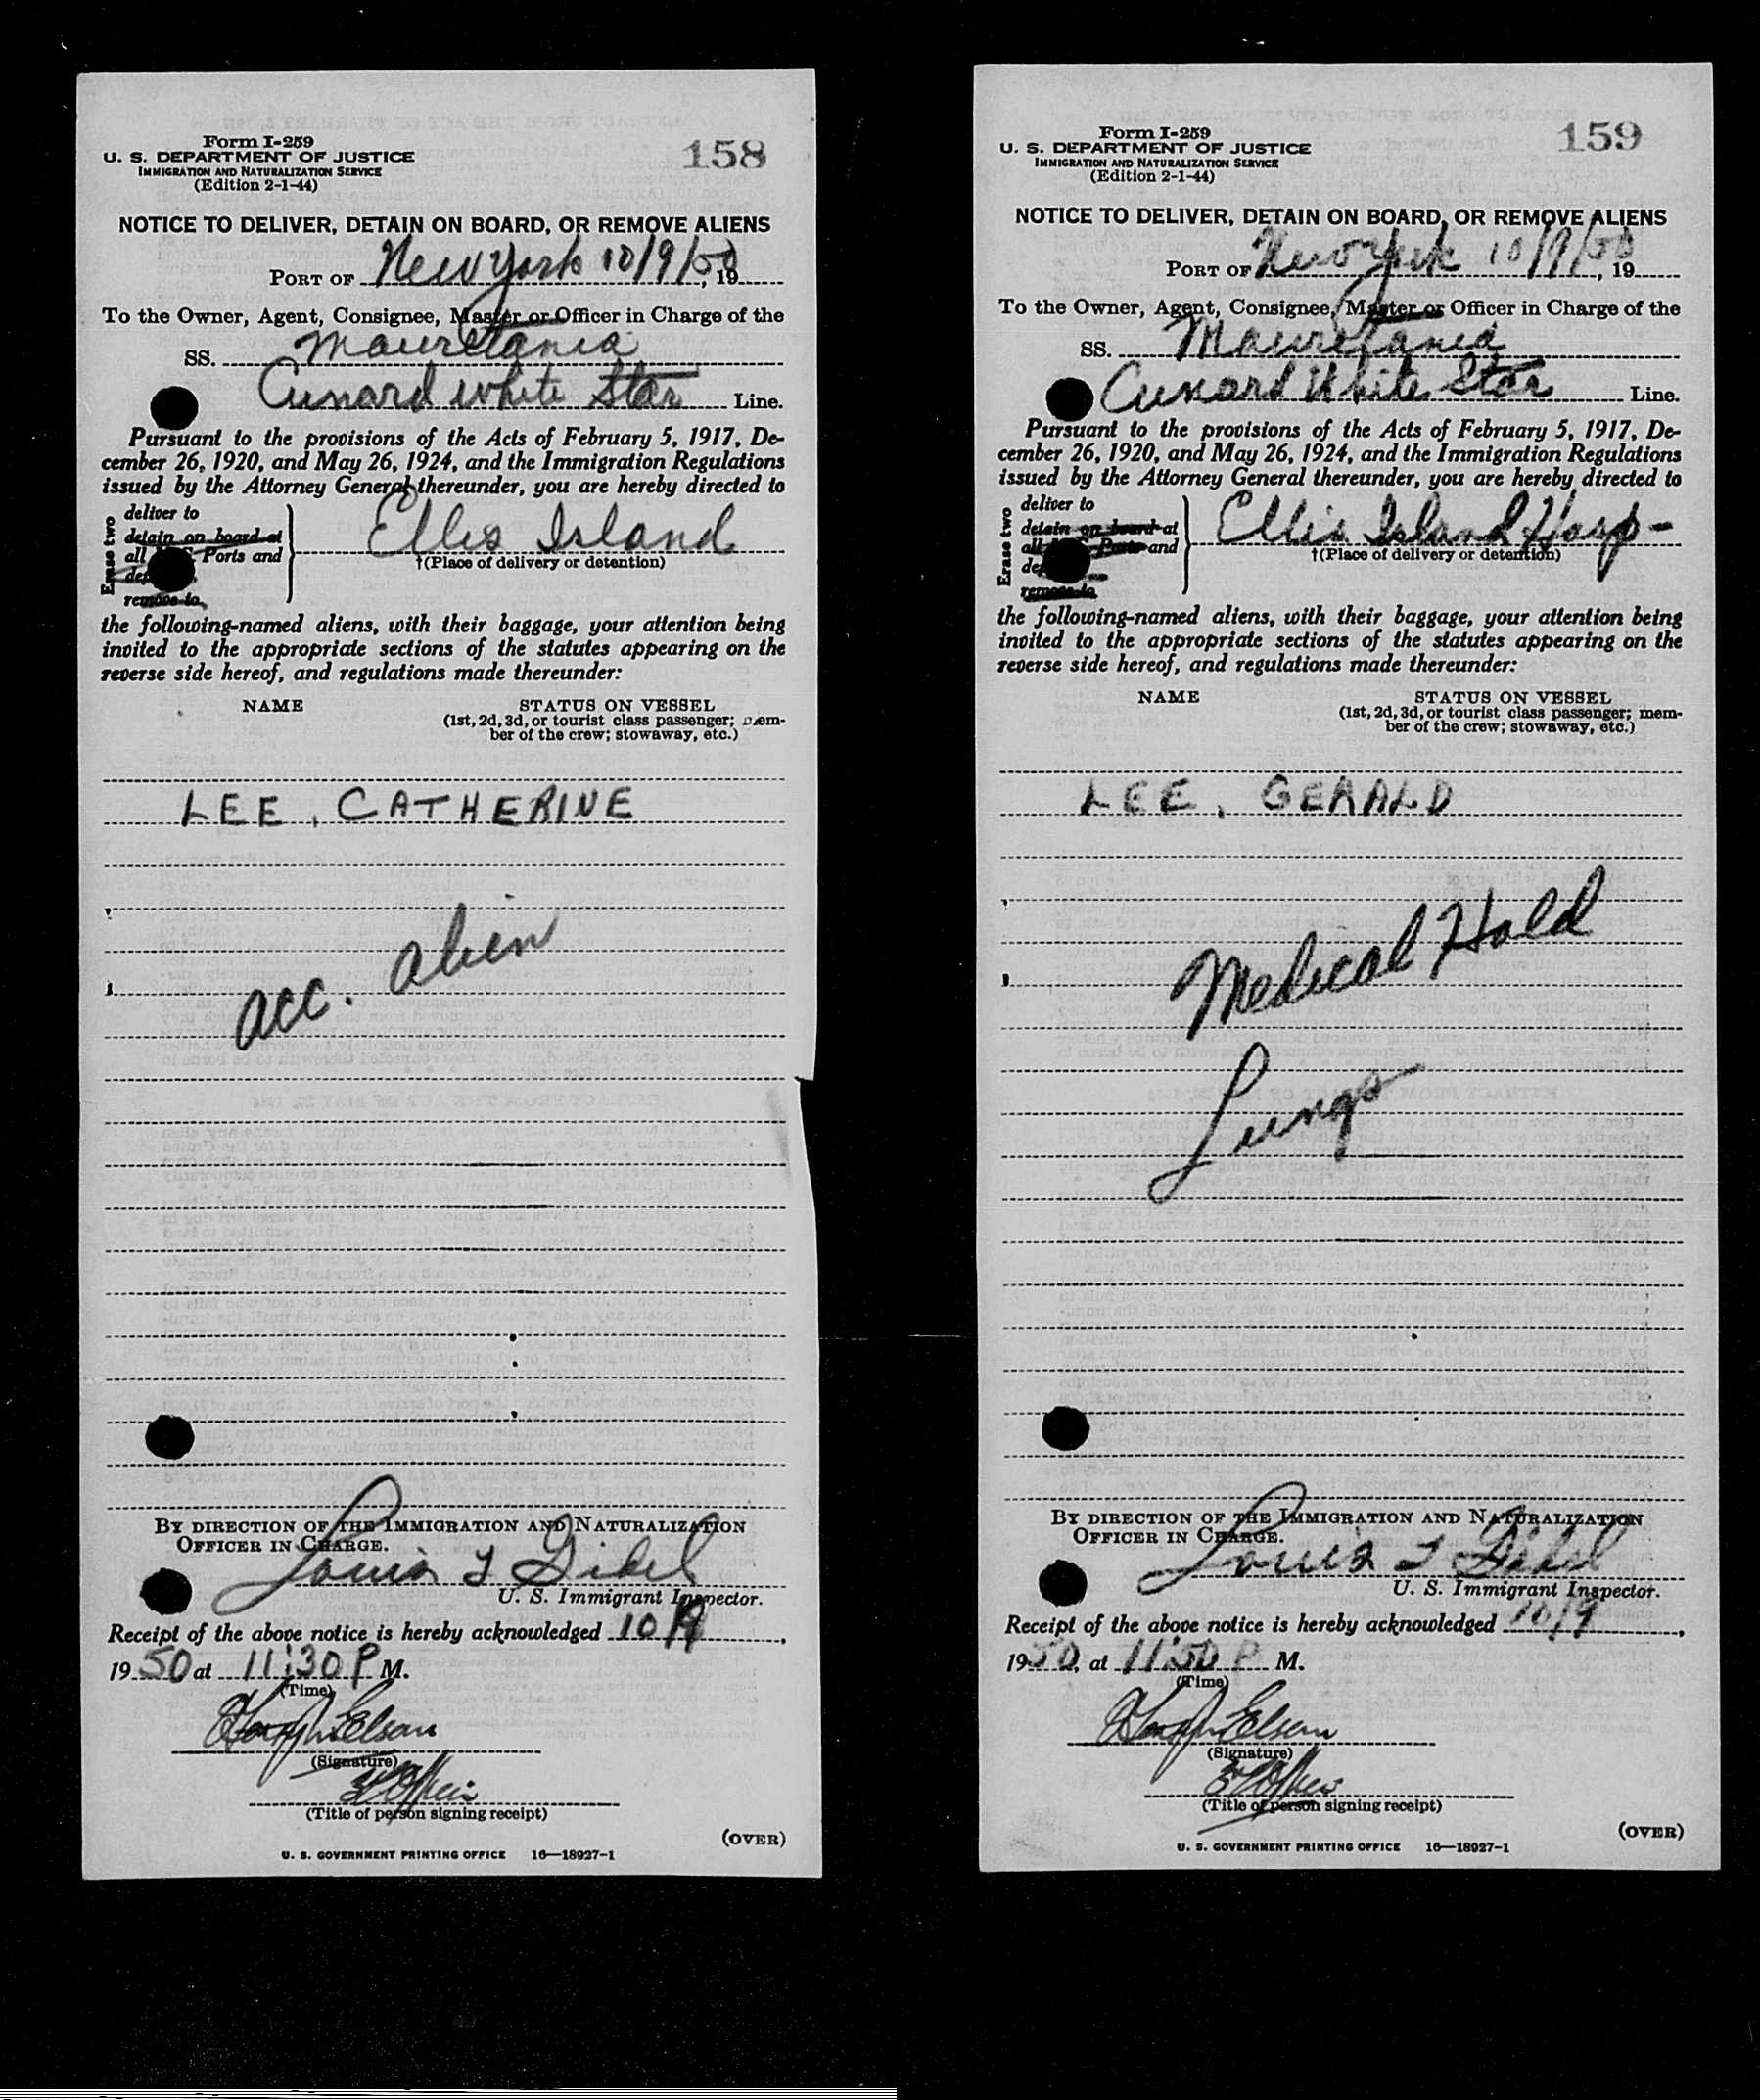 Form I-259
U. S. DEPARTMENT OF JUSTICE
IMMIGRATION AND NATURALIZATION SERVICE
(Edition 2-1-44)
158
NOTICE TO DELIVER, DETAIN ON BOARD, OR REMOVE ALIENS
PORT OF New York 10/9/50, 19
To the Owner, Agent, Consignee, Master or Officer in Charge of the
SS. Mauretania
Cunard White Star Line.
Pursuant to the provisions of the Acts of February 5, 1917, De-
cember 26, 1920, and May 26, 1924, and the Immigration Regulations
issued by the Attorney General thereunder, you are hereby directed to
Erase two
deliver to
detain on board at
all Ports and
remove to
Ellis Island
†(Place of delivery or detention)
the following-named aliens, with their baggage, your attention being
invited to the appropriate sections of the statutes appearing on the
reverse side hereof, and regulations made thereunder:
NAME STATUS ON VESSEL
(1st, 2d, 3d, or tourist class passenger; mem-
ber of the crew; stowaway, etc.)
LEE, CATHERINE
acc. alien
BY DIRECTION OF THE IMMIGRATION AND NATURALIZATION
OFFICER IN CHARGE.
Louis
U. S. Immigrant Inspector.
Receipt of the above notice is hereby acknowledged 10/9,
1950 at 11:30 P M.
(Time)
(Signature)
(Title of person signing receipt)
(OVER)
U. S. GOVERNMENT PRINTING OFFICE 16—18927-1
Form I-259
U. S. DEPARTMENT OF JUSTICE
IMMIGRATION AND NATURALIZATION SERVICE
(Edition 2-1-44)
159
NOTICE TO DELIVER, DETAIN ON BOARD, OR REMOVE ALIENS
PORT OF New York 10/9/50, 19
To the Owner, Agent, Consignee, Master or Officer in Charge of the
SS. Mauretania
Cunard White Star Line.
Pursuant to the provisions of the Acts of February 5, 1917, De-
cember 26, 1920, and May 26, 1924, and the Immigration Regulations
issued by the Attorney General thereunder, you are hereby directed to
Erase two
deliver to
detain on board at
all Ports and
remove to
Ellis Island Hosp-
†(Place of delivery or detention)
the following-named aliens, with their baggage, your attention being
invited to the appropriate sections of the statutes appearing on the
reverse side hereof, and regulations made thereunder:
NAME STATUS ON VESSEL
(1st, 2d, 3d, or tourist class passenger; mem-
ber of the crew; stowaway, etc.)
LEE, GERALD
Medical Hold
Lungs
BY DIRECTION OF THE IMMIGRATION AND NATURALIZATION
OFFICER IN CHARGE.
Louis
U. S. Immigrant Inspector.
Receipt of the above notice is hereby acknowledged 10/9,
1950, at P M.
(Time)
(Signature)
(Title of person signing receipt)
(OVER)
U. S. GOVERNMENT PRINTING OFFICE 16—18927-1